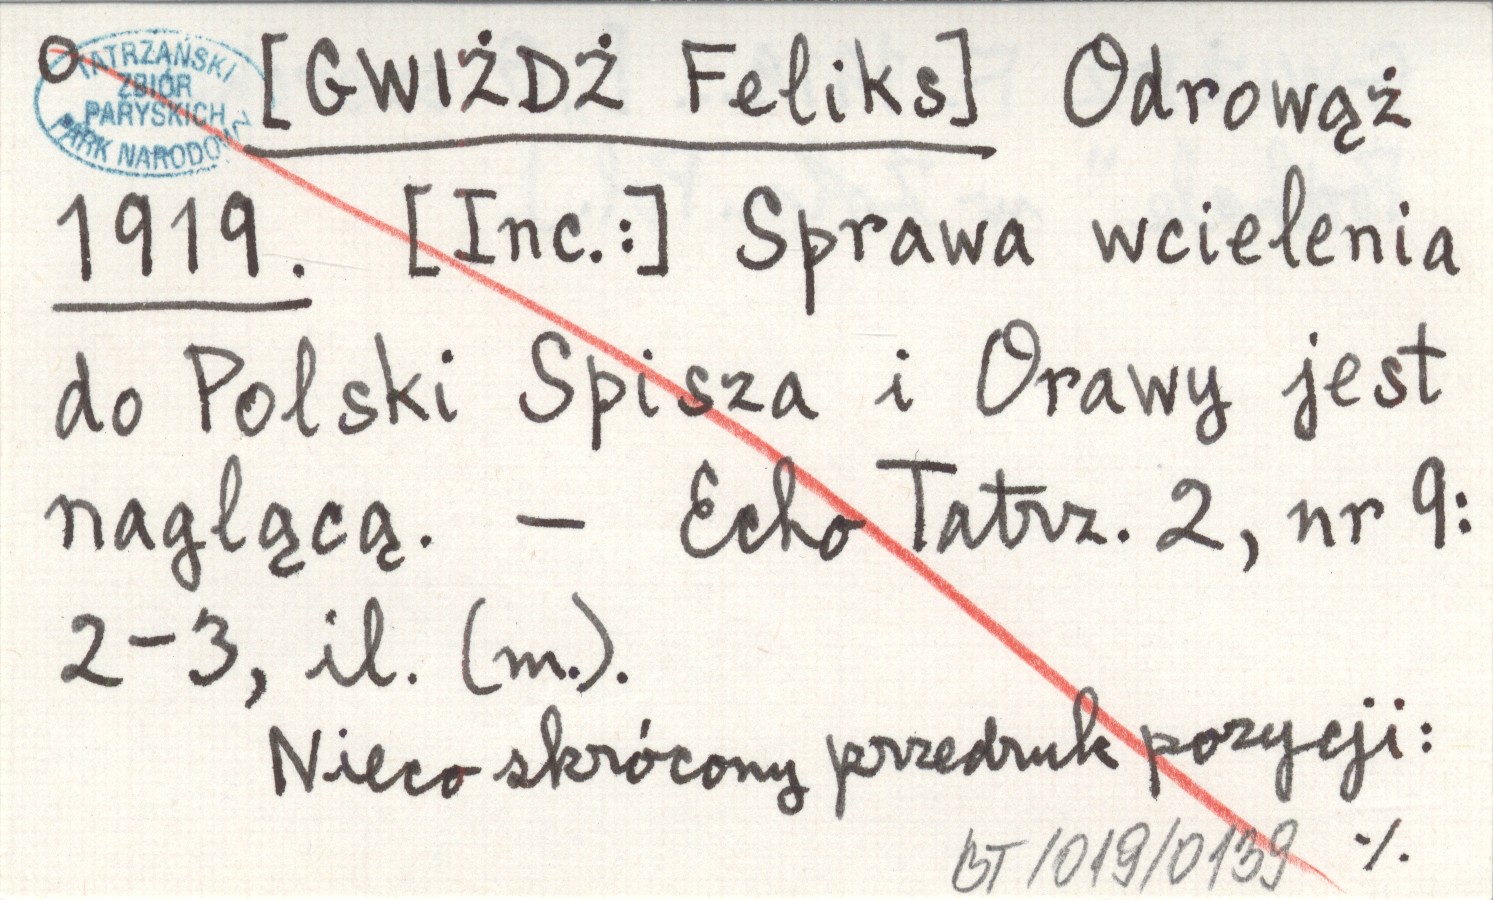 TATRZAŃSKI
ZBIÓR
PARYSKICH
PARK NARODOWY
[GWIŻDŻ Feliks] Odrowąż
1919. [Inc.:] Sprawa wcielenia
do Polski Spisza i Orawy jest
naglącą. — Echo Tatrz. 2, nr 9:
2-3, il. (m.).
Nieco skrócony przedruk pozycji:
BT/019/0139 ./.